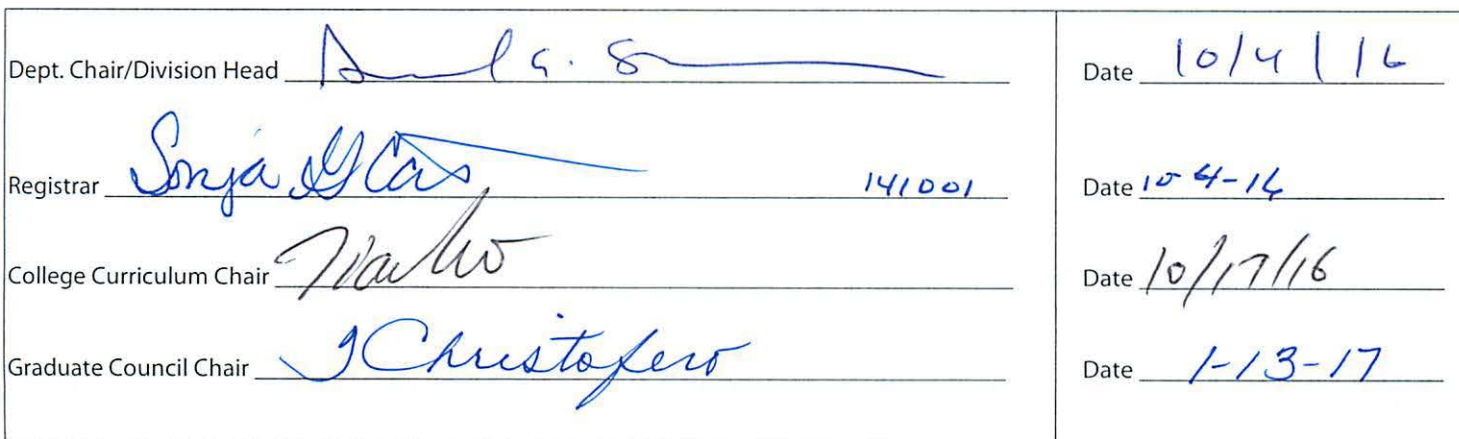 Dept. Chair/Division Head G. S Date 10/4/16
Registrar Sonja G 141001 Date 10-4-16
College Curriculum Chair Date 10/17/16
Graduate Council Chair J Christofero Date 1-13-17